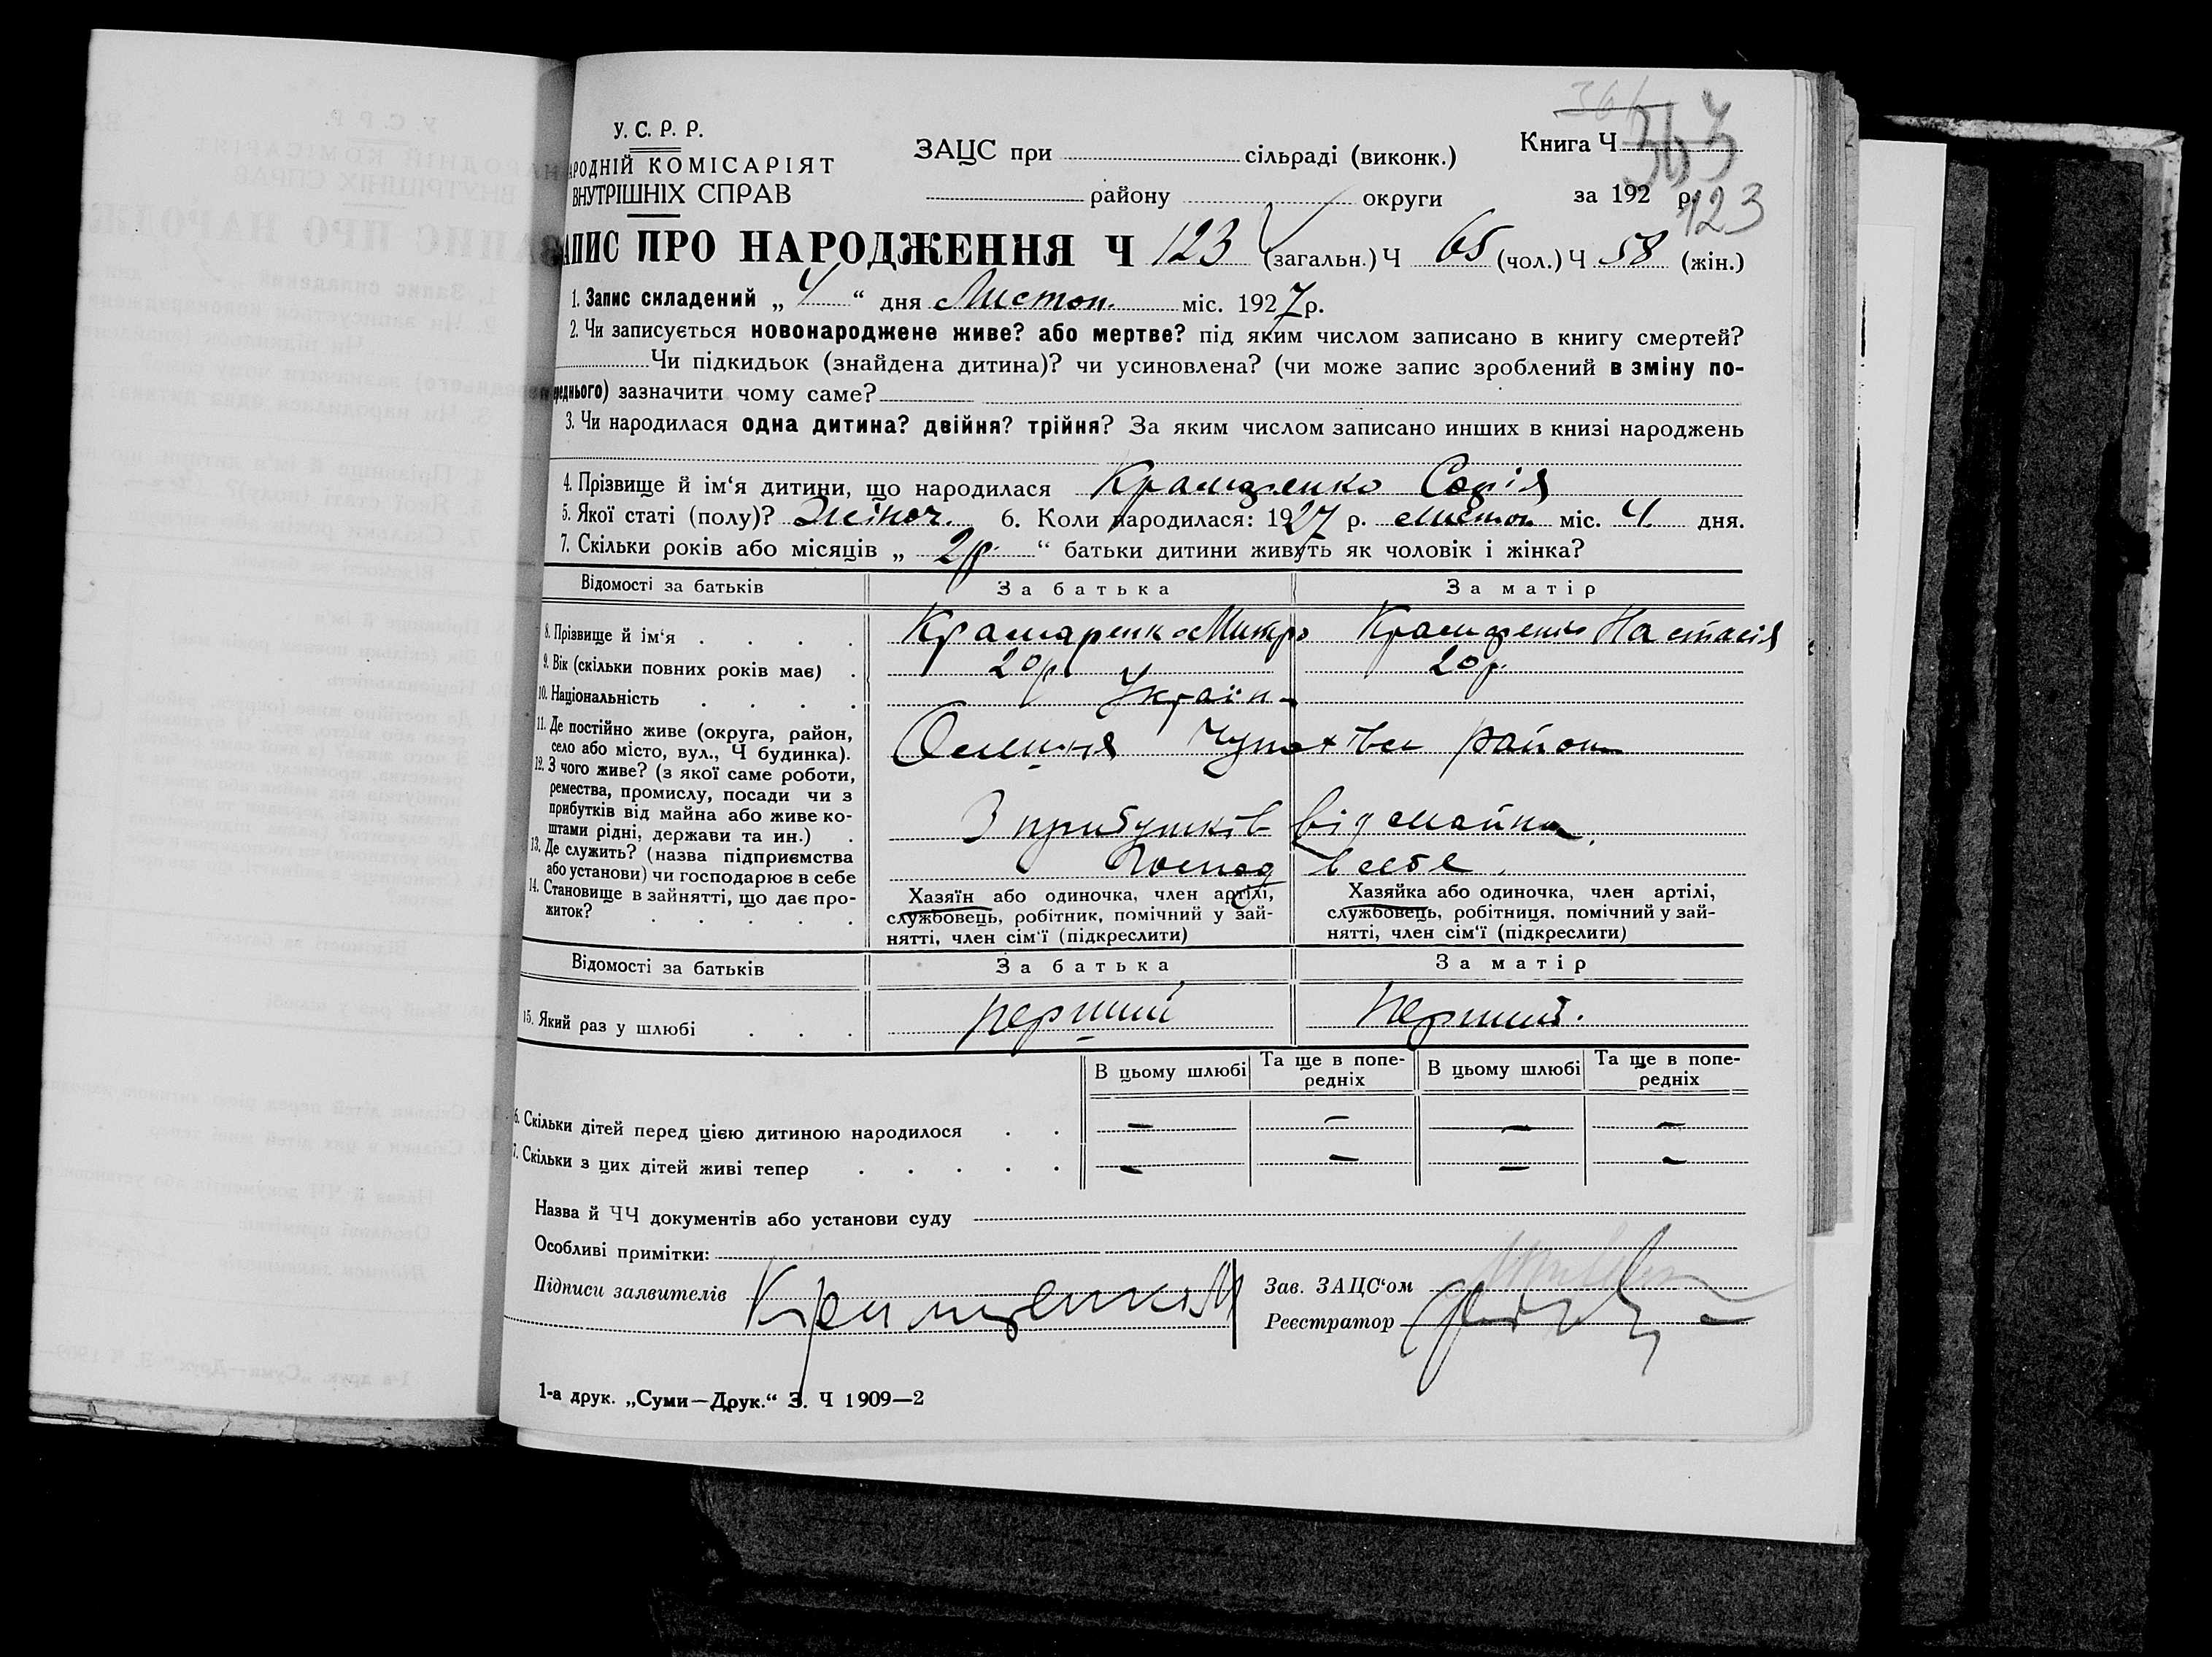 361
363
123
У. С. Р. Р.
АРОДНІЙ КОМІСАРІЯТ
ВНУТРІШНІХ СПРАВ
ЗАЦС при сільраді (виконк.)
району округи
Книга Ч
за 192 р.
АПИС ПРО НАРОДЖЕННЯ Ч 123 (загальн.) Ч 65 (чол.) Ч 58 (жін.)
1. Запис складений „ 4 “ дня Листоп. міс. 1927 р.
2. Чи записується новонароджене живе? або мертве? під яким числом записано в книгу смертей?
Чи підкидьок (знайдена дитина)? чи усиновлена? (чи може запис зроблений в зміну по-
реднього) зазначити чому саме?
3. Чи народилася одна дитина? двійня? трійня? За яким числом записано инших в книзі народжень
4. Прізвище й ім‘я дитини, що народилася Крамаренко Софія
5. Якої статі (полу)? Жіноч. 6. Коли народилася: 1927 р. Листоп міс. 4 дня.
7. Скільки років або місяців „ 2 р. “ батьки дитини живуть як чоловік і жінка?
Відомості за батьків За батька За матір
8. Прізвище й ім‘я Крамаренко Крамаренко Настасія
9. Вік (скільки повних років має) 20 р 20 р.
10. Національність Україн
11. Де постійно живе (округа, район,
село або місто, вул., Ч будинка). район
12. З чого живе? (з якої саме роботи,
ремества, промислу, посади чи з
прибутків від майна або живе ко-
штами рідні, держави та ин.) З прибутків від майна.
13. Де служить? (назва підприємства
або установи) чи господарює в себе Господ в себе.
14. Становище в зайнятті, що дає про-
житок?
Хазяїн або одиночка, член артілі,
службовець, робітник, помічний у зай-
нятті, член сім‘ї (підкреслити)
Хазяйка або одиночка, член артілі,
службовець, робітниця, помічний у зай-
нятті, член сім‘ї (підкреслити)
Відомості за батьків За батька За матір
15. Який раз у шлюбі перший Перший.
В цьому шлюбі Та ще в попе-
редніх В цьому шлюбі Та ще в попе-
редніх
6. Скільки дітей перед цією дитиною народилося — — — —
7. Скільки з цих дітей живі тепер — — — —
Назва й ЧЧ документів або установи суду
Особливі примітки:
Підписи заявителів Крамаренко М
Зав. ЗАЦС‘ом
Реєстратор
1-а друк. „Суми—Друк.“ З. Ч 1909—2